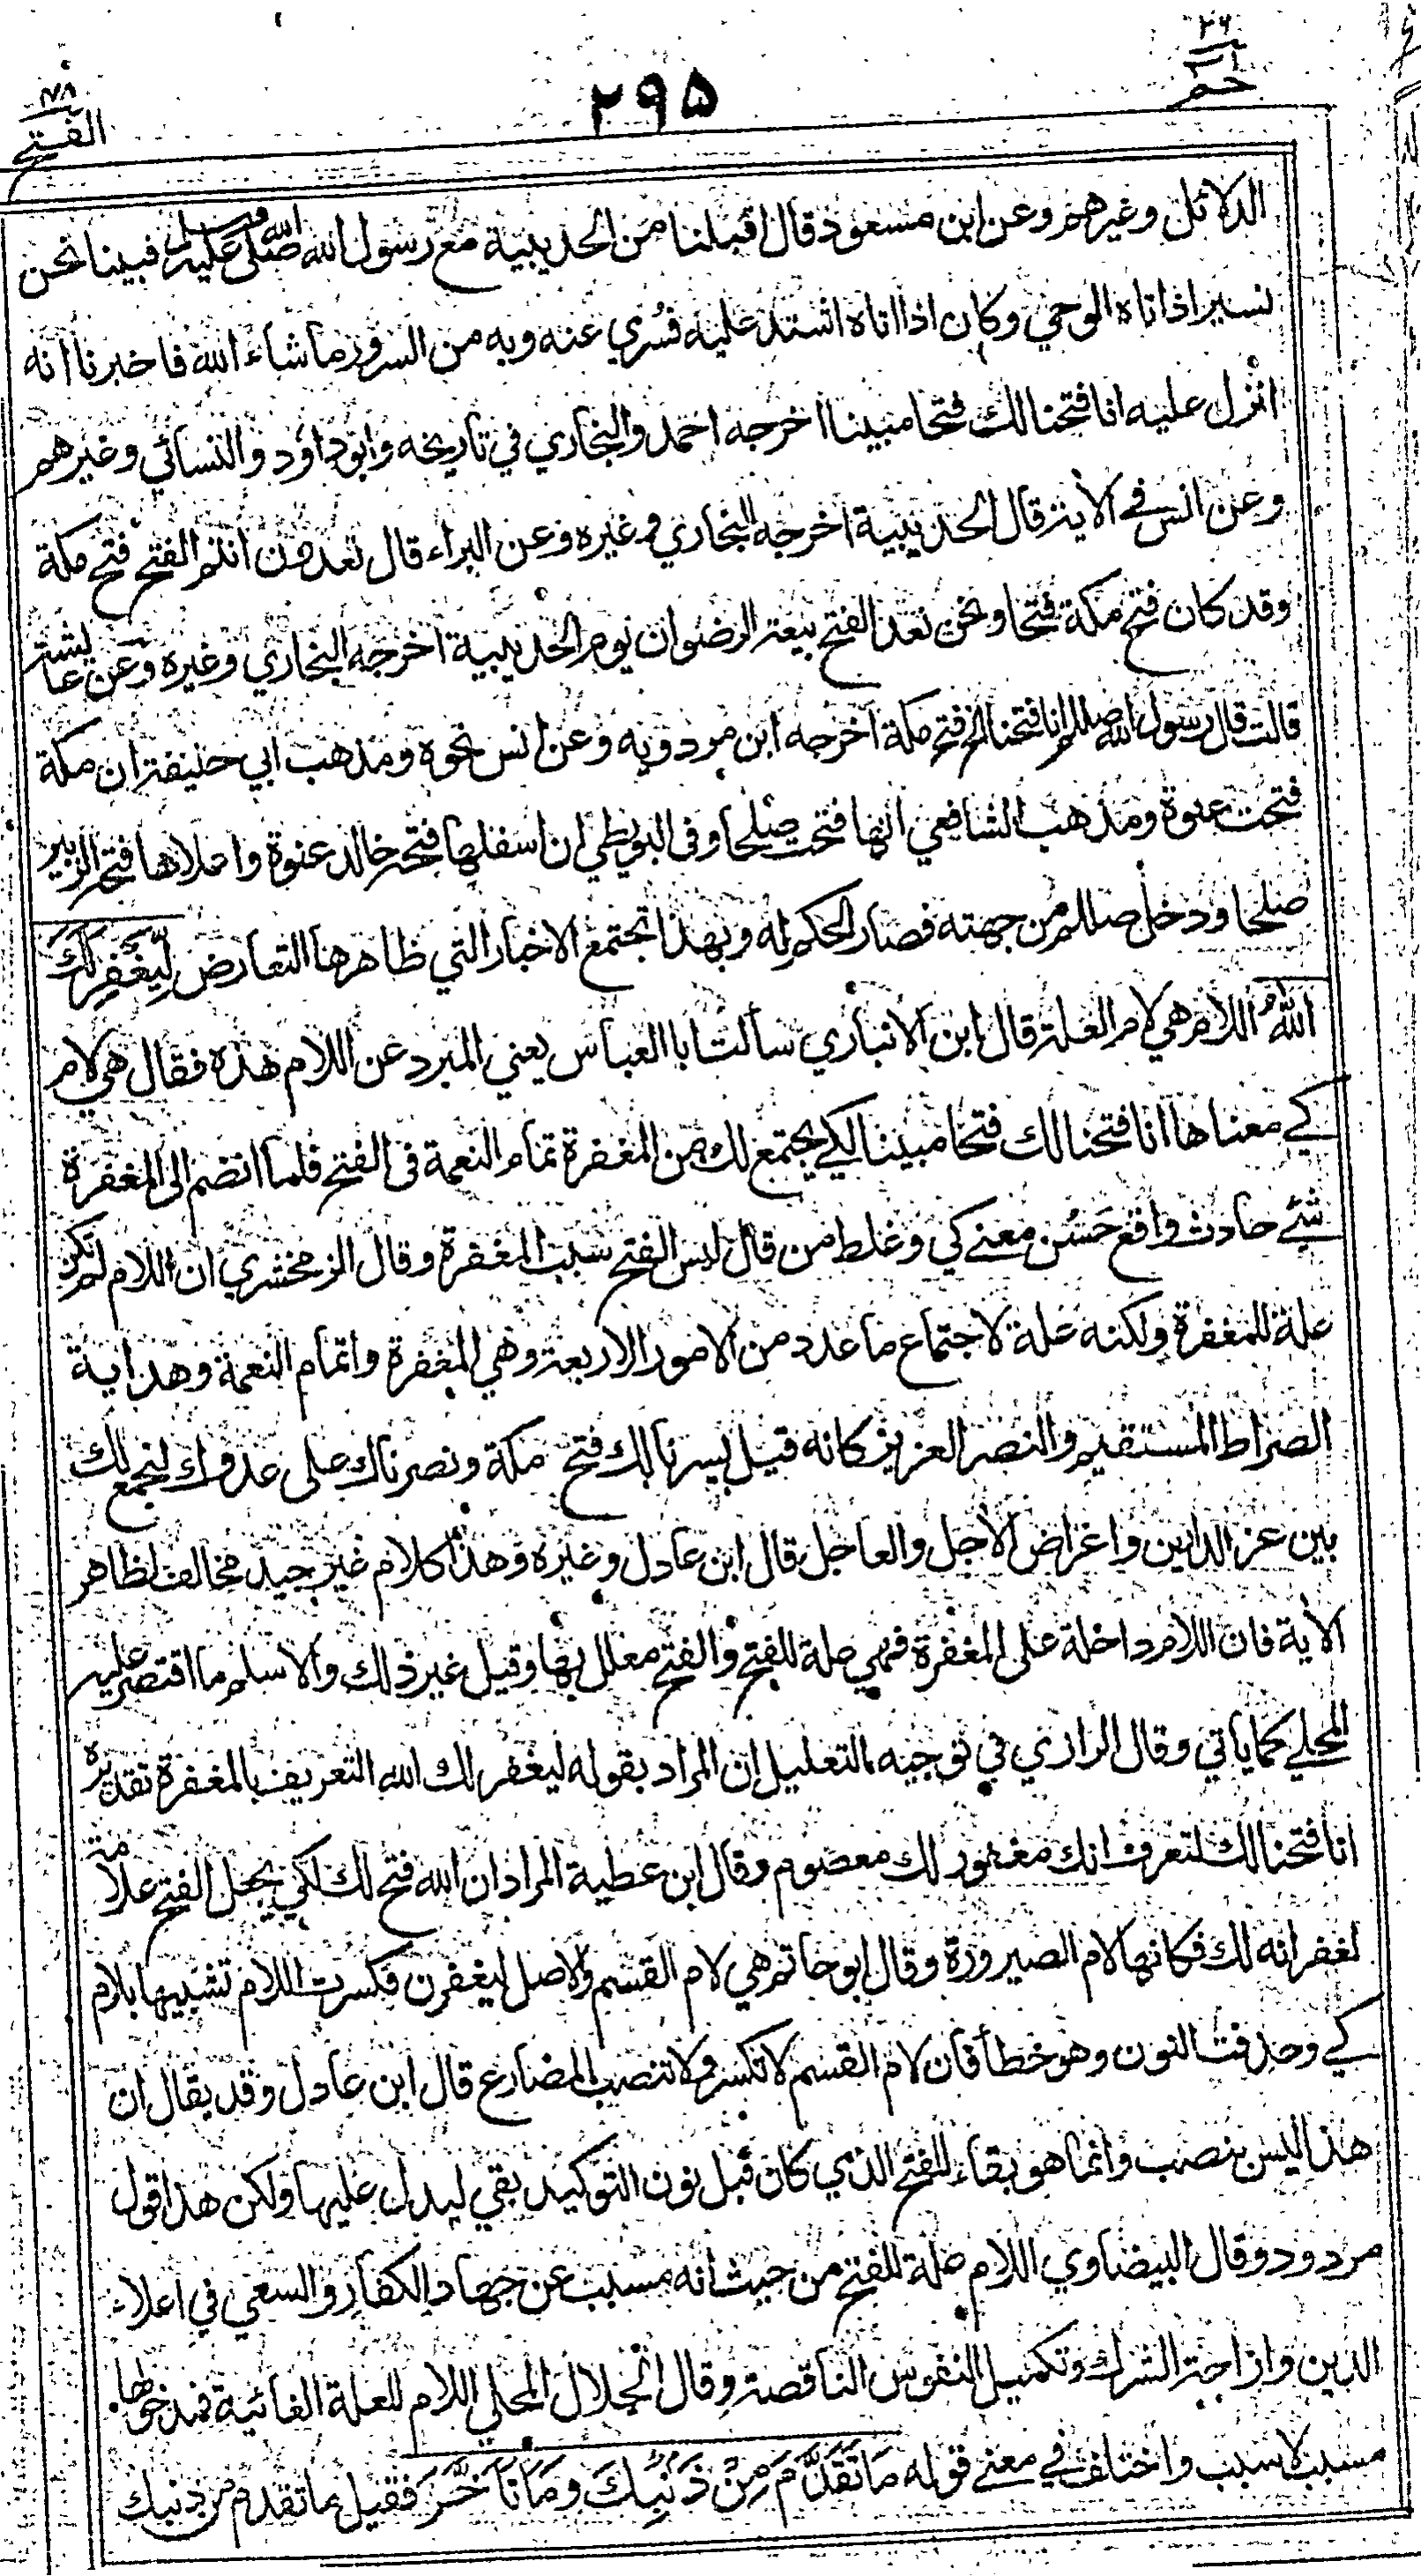 ٢٦
حم
٢٩٥
٤٨
الفتح
الدلائل وغيرهم وعن ابن مسعود قال اقبلنا من الحديبية مع رسول الله صلى الله عليه وسلم فبينا نحن
نسير اذا تاه الوحي وكان اذا اتاه اشتد عليه فسُري عنه وبه من السرور ما شاء الله فاخبرنا انه
انزل عليه انا فتحنا لك فتحا مبينا اخرجه احمد والبخاري في تاريخه وابو داود والنسائي وغيرهم
وعن انس في الأية قال الحديبية اخرجه البخاري وغيره وعن البراء قال تعدون انتم الفتح فتح مكة
وقد كان فتح مكة فتحا ونحن نعد الفتح بيعة الرضوان يوم الحديبية اخرجه البخاري وغيره وعن عائشة
قالت قال رسول الله صللم انا فتحنا الخ فتح مكة اخرجه ابن مردويه وعن انس نحوه ومذهب ابي حنيفة ان مكة
فتحت عنوة ومذهب الشافعي انها فتحت صلحا وفى البويطي ان اسفلها فتحه خالد عنوة واعلاها فتحه الزبير
صلحا ودخل صللم من جهته فصار الحكم له وبهذا تجتمع الاخبار التي ظاهرها التعارض لِيَغْفِرَ لَكَ
اللهُ اللام هي لام العلة قال ابن الانباري سألت ابا العباس يعني المبرد عن اللام هذه فقال هي لام
كي معناها انا فتحنا لك فتحا مبينا لكي يجتمع لك من المغفرة تمام النعمة فى الفتح فلما انضم الى المغفرة
شئ حادث واقع حَسُن معنى كي وغلط من قال ليس الفتح سبب المغفرة وقال الزمخشري ان اللام لم تكن
علة للمغفرة ولكنه علة لاجتماع ما عدد من الامور الاربعة وهي المغفرة واتمام النعمة وهداية
الصراط المستقيم والنصر العزيز كانه قيل يسرنا لك فتح مكة ونصرناك على عدوك لنجمع لك
بين عز الدارين واغراض الأجل والعاجل قال ابن عادل وغيره وهذا كلام غير جيد مخالف لظاهر
الأية فان اللام داخلة على المغفرة فهي علة للفتح والفتح معلل بها وقيل غير ذلك والاسلم ما اقتصر عليه
المحلي كما ياتي وقال الرازي في توجيه التعليل ان المراد بقوله ليغفر لك الله التعريف بالمغفرة تقديره
انا فتحنا لك لتعرف انك مغفور لك معصوم وقال ابن عطية المراد ان الله فتح لك لكي يجعل الفتح علامة
لغفرانه لك فكانها لام الصيرورة وقال ابو حاتم هي لام القسم والاصل ليغفرن فكسرت اللام تشبيها بلام
كي وحذفت النون وهو خطأ فان لام القسم لا تكسر ولا تنصب المضارع قال ابن عادل وقد يقال ان
هذا ليس بنصب وانما هو بقاء للفتح الذي كان قبل نون التوكيد بقي ليدل عليها ولكن هذا قول
مردود وقال البيضاوي اللام علة للفتح من حيث انه مسبب عن جهاد الكفار والسعي في اعلاء
الدين وازاحة الشرك وتكميل النفوس الناقصة وقال الجلال المحلي اللام للعلة الغائية فمدخولها
مسبب لا سبب واختلف في معنى قوله مَا تَقَدَّمَ مِنْ ذَنْبِكَ وَمَا تَأَخَّرَ فقيل ما تقدم من ذنبك